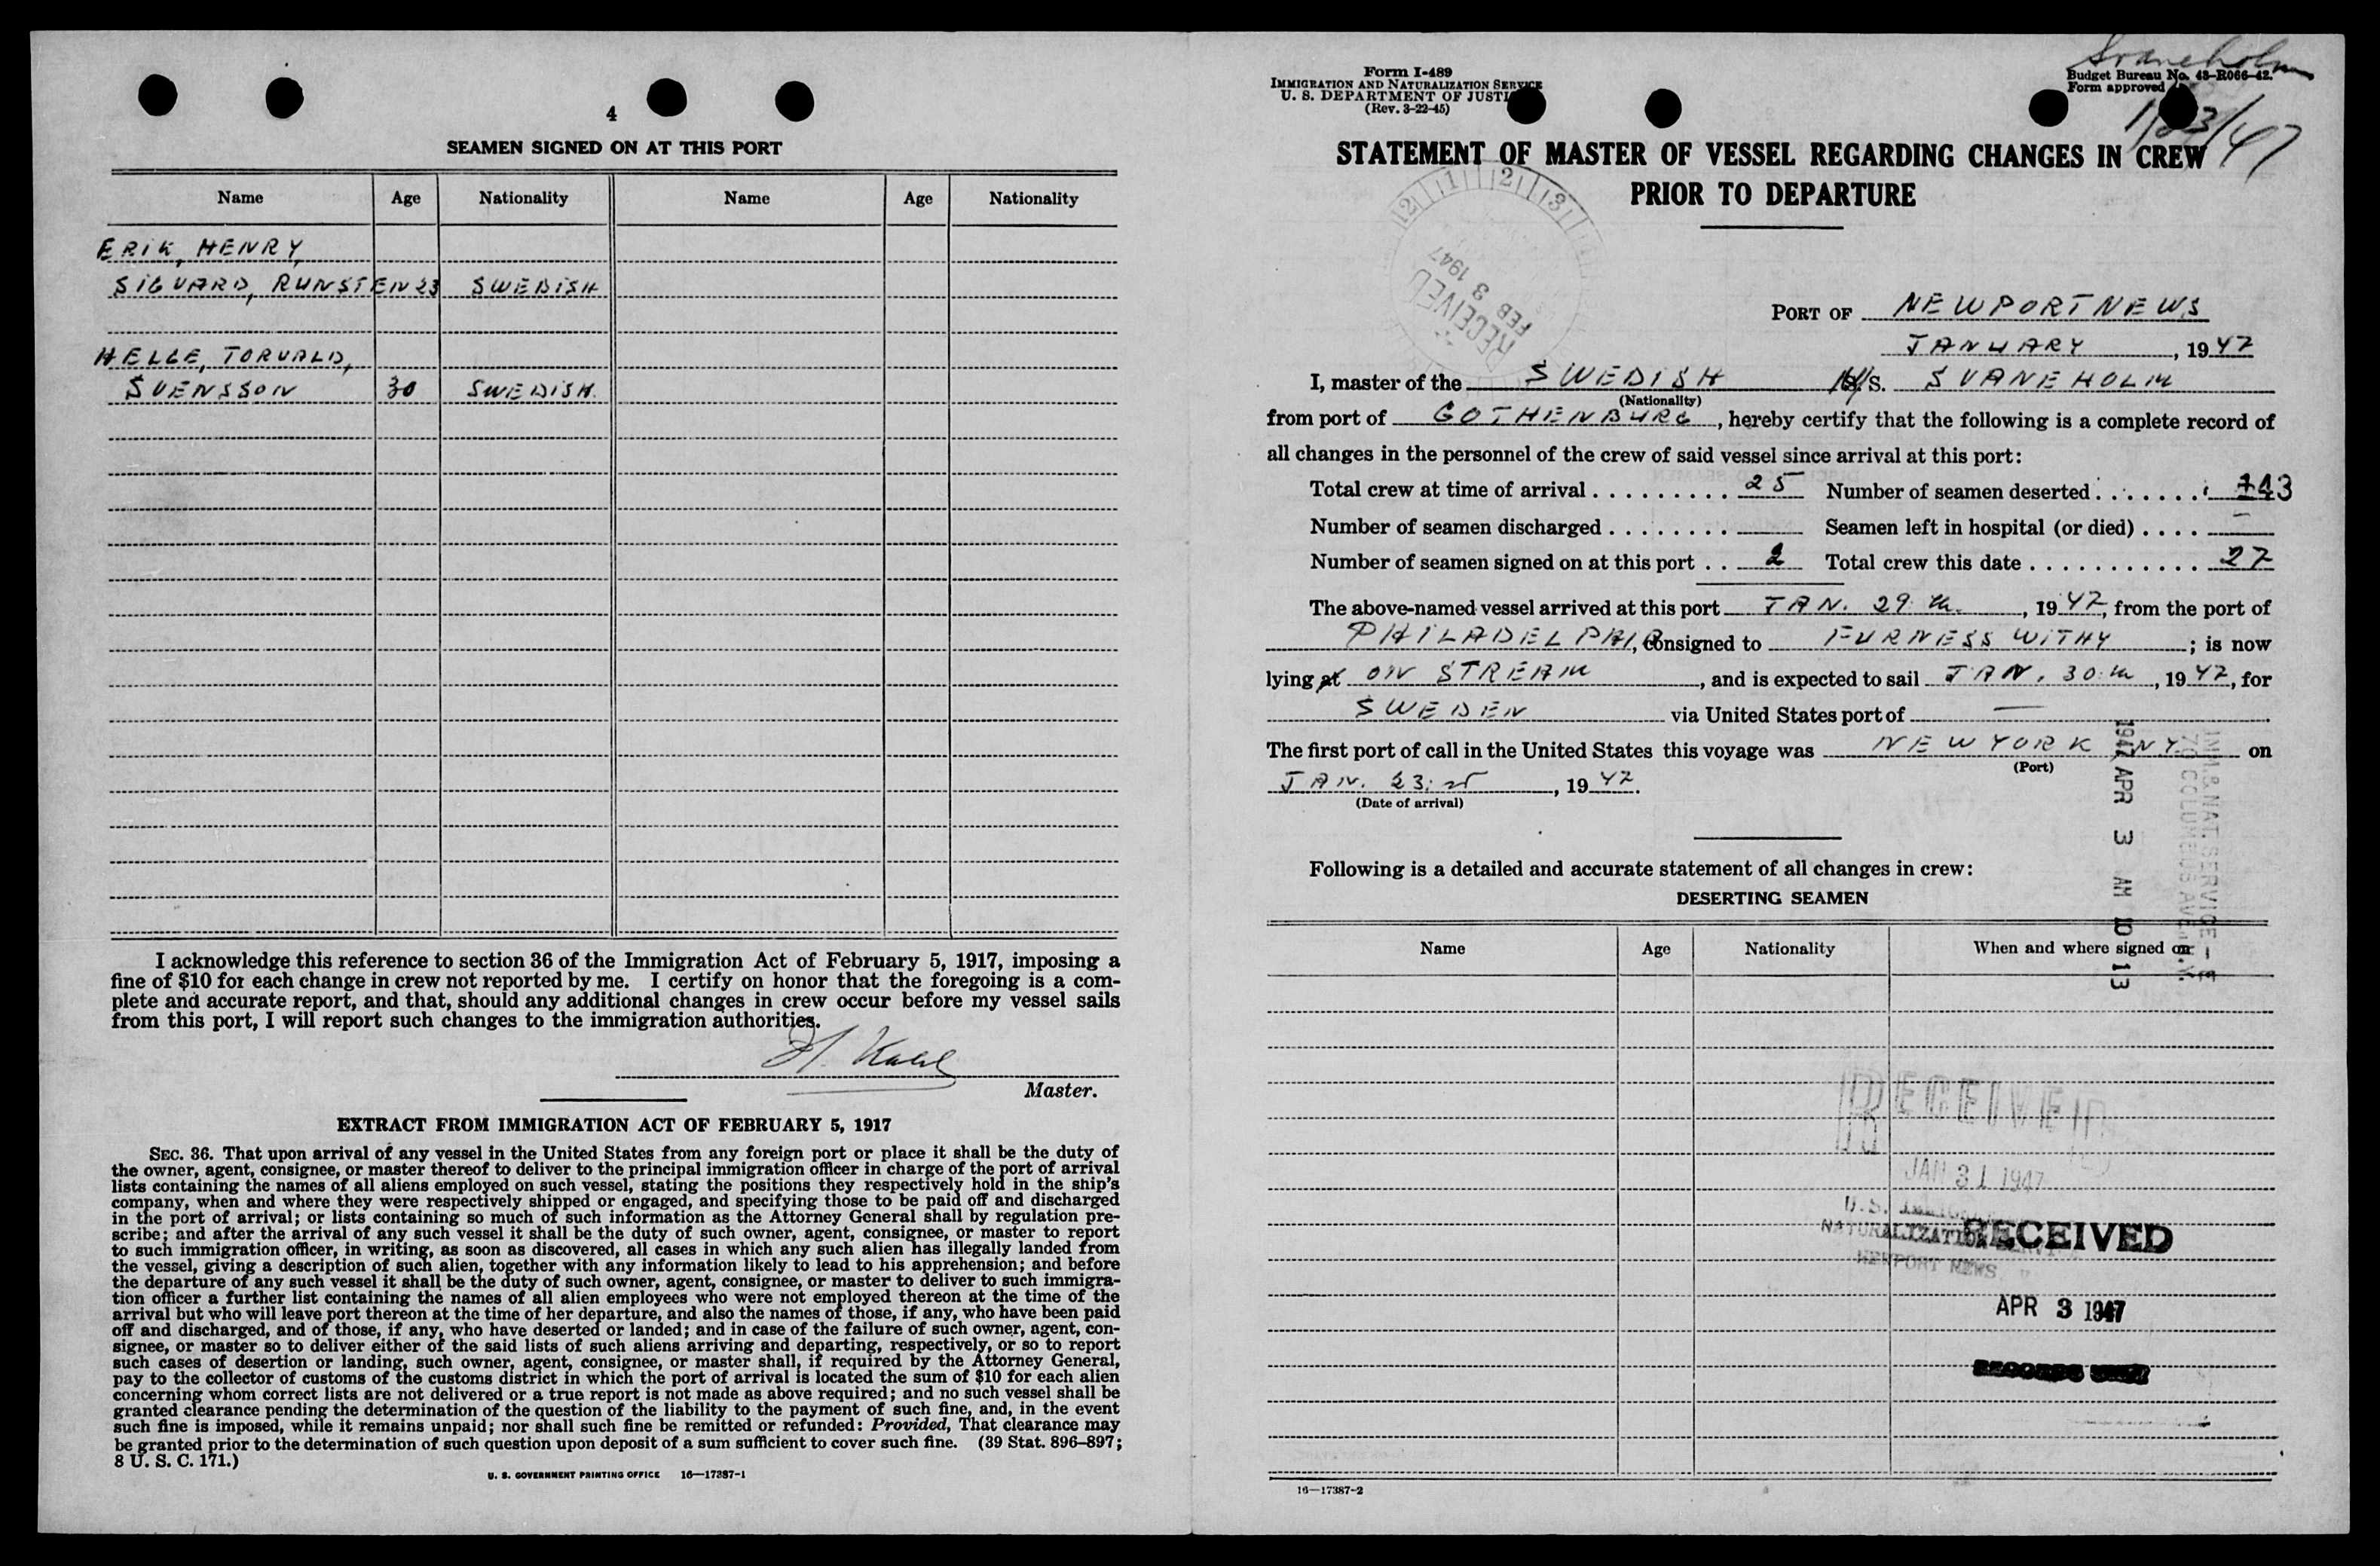 4
SEAMEN SIGNED ON AT THIS PORT
Name Age Nationality Name Age Nationality
ERIK, HENRY,
SIGVARD, RUNSTEN 23 SWEDISH
HELGE, TORVALD,
SVENSSON 30 SWEDISH
I acknowledge this reference to section 36 of the Immigration Act of February 5, 1917, imposing a
fine of $10 for each change in crew not reported by me. I certify on honor that the foregoing is a com-
plete and accurate report, and that, should any additional changes in crew occur before my vessel sails
from this port, I will report such changes to the immigration authorities.
Master.
EXTRACT FROM IMMIGRATION ACT OF FEBRUARY 5, 1917
SEC. 36. That upon arrival of any vessel in the United States from any foreign port or place it shall be the duty of
the owner, agent, consignee, or master thereof to deliver to the principal immigration officer in charge of the port of arrival
lists containing the names of all aliens employed on such vessel, stating the positions they respectively hold in the ship's
company, when and where they were respectively shipped or engaged, and specifying those to be paid off and discharged
in the port of arrival; or lists containing so much of such information as the Attorney General shall by regulation pre-
scribe; and after the arrival of any such vessel it shall be the duty of such owner, agent, consignee, or master to report
to such immigration officer, in writing, as soon as discovered, all cases in which any such alien has illegally landed from
the vessel, giving a description of such alien, together with any information likely to lead to his apprehension; and before
the departure of any such vessel it shall be the duty of such owner, agent, consignee, or master to deliver to such immigra-
tion officer a further list containing the names of all alien employees who were not employed thereon at the time of the
arrival but who will leave port thereon at the time of her departure, and also the names of those, if any, who have been paid
off and discharged, and of those, if any, who have deserted or landed; and in case of the failure of such owner, agent, con-
signee, or master so to deliver either of the said lists of such aliens arriving and departing, respectively, or so to report
such cases of desertion or landing, such owner, agent, consignee, or master shall, if required by the Attorney General,
pay to the collector of customs of the customs district in which the port of arrival is located the sum of $10 for each alien
concerning whom correct lists are not delivered or a true report is not made as above required; and no such vessel shall be
granted clearance pending the determination of the question of the liability to the payment of such fine, and, in the event
such fine is imposed, while it remains unpaid; nor shall such fine be remitted or refunded: Provided, That clearance may
be granted prior to the determination of such question upon deposit of a sum sufficient to cover such fine. (39 Stat. 896–897;
8 U. S. C. 171.)
U. S. GOVERNMENT PRINTING OFFICE 16—17387-1
Form I-489
IMMIGRATION AND NATURALIZATION SERVICE
U. S. DEPARTMENT OF JUSTICE
(Rev. 3-22-45)
Svaneholm
Budget Bureau No. 43-R066-42.
Form approved
1/23/47
STATEMENT OF MASTER OF VESSEL REGARDING CHANGES IN CREW
PRIOR TO DEPARTURE
2 1 2 3
RECEIVED
FEB 3 1947
PORT OF NEWPORT NEWS
JANUARY, 1947
I, master of the SWEDISH M/S. SVANEHOLM
(Nationality)
from port of GOTHENBURG, hereby certify that the following is a complete record of
all changes in the personnel of the crew of said vessel since arrival at this port:
Total crew at time of arrival 25 Number of seamen deserted 143
Number of seamen discharged Seamen left in hospital (or died) —
Number of seamen signed on at this port 2 Total crew this date 27
The above-named vessel arrived at this port JAN. 29th, 1947, from the port of
PHILADELPHIA, consigned to FURNESS WITHY; is now
lying at ON STREAM, and is expected to sail JAN. 30th, 1947, for
SWEDEN via United States port of —
The first port of call in the United States this voyage was NEW YORK NY on
(Port)
JAN. 23, 1947.
(Date of arrival)
IMM. & NAT. SERVICE
70 COLUMBUS AVE. N.Y.
1947 APR 3 AM 10 13
Following is a detailed and accurate statement of all changes in crew:
DESERTING SEAMEN
Name Age Nationality When and where signed on
RECEIVED
JAN 31 1947
U.S.
NATURALIZATION
NEWPORT NEWS
RECEIVED
APR 3 1947
16—17387-2